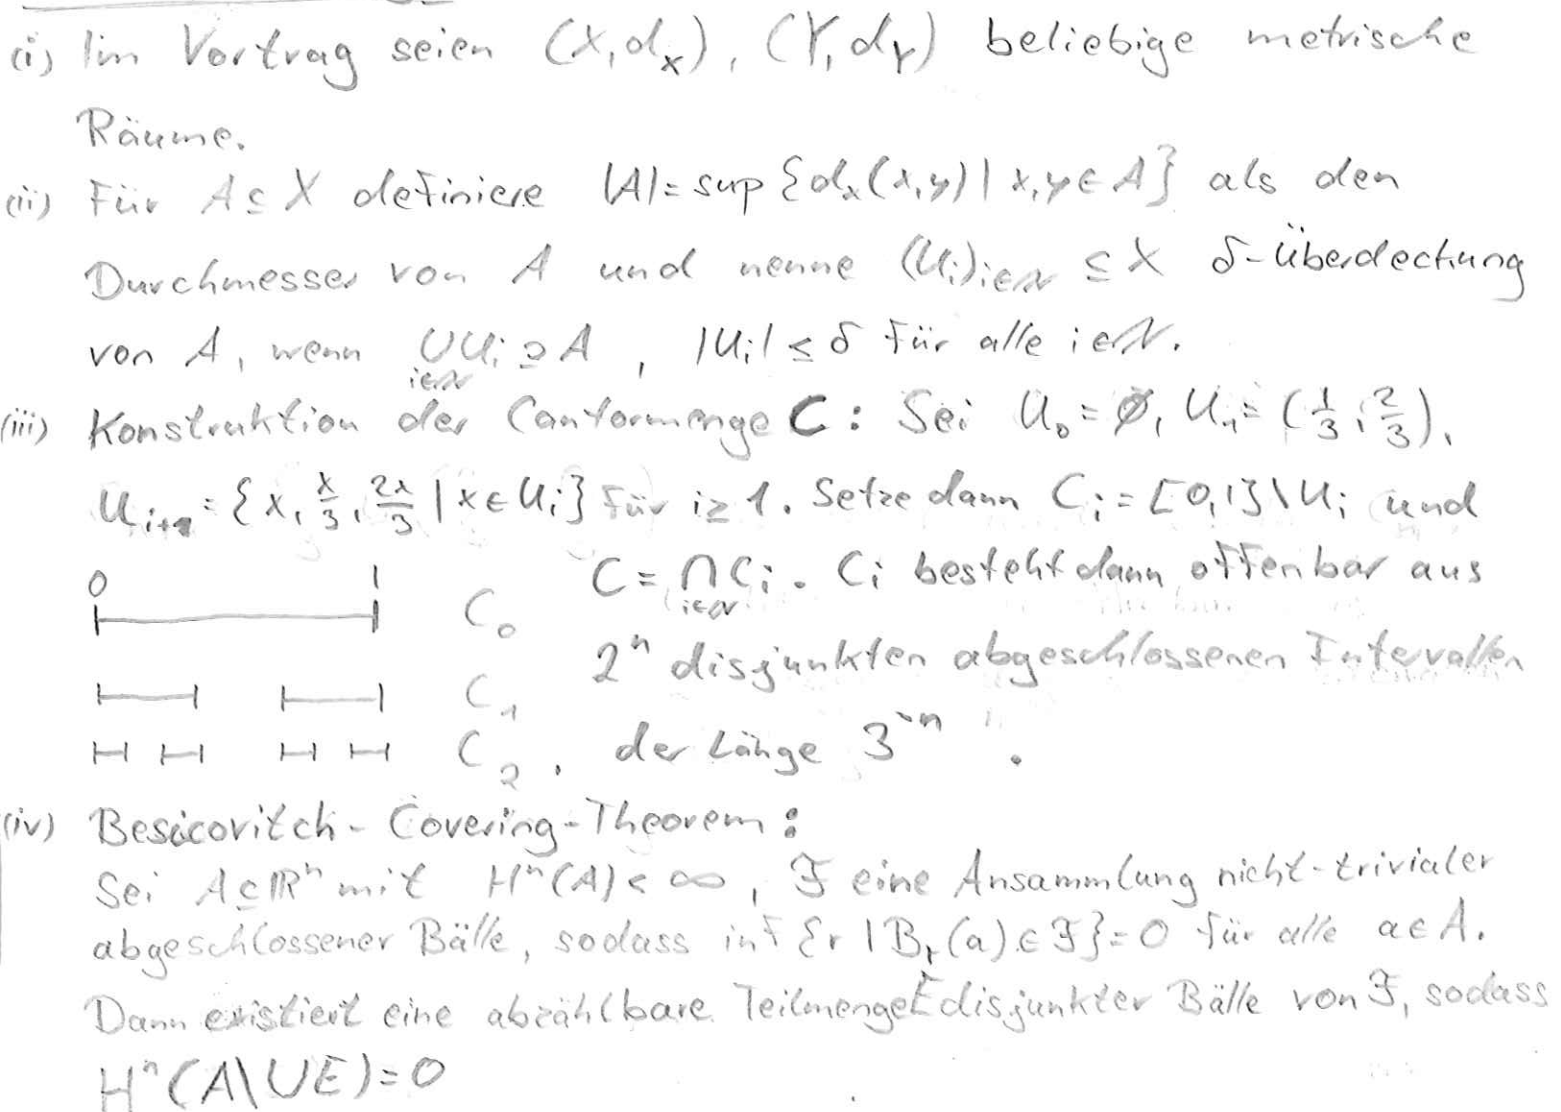 (i) Im Vortrag seien (X,d_X), (Y,d_Y) beliebige metrische
Räume.
(ii) Für A ⊆ X definiere |A| = sup {d_X(x,y) | x,y ∈ A} als den
Durchmesser von A und nenne (U_i)_{i∈ℕ} ⊆ X δ-Überdeckung
von A, wenn ⋃_{i∈ℕ} U_i ⊇ A, |U_i| ≤ δ für alle i∈ℕ.
(iii) Konstruktion der Cantormenge C: Sei U_0 = ∅, U_1 = (1/3, 2/3),
U_{i+1} = {x, x/3, 2x/3 | x ∈ U_i} für i ≥ 1. Setze dann C_i := [0,1] \ U_i und
C = ⋂_{i∈ℕ} C_i. C_i besteht dann offenbar aus
0 1 C_0
2^n disjunkten abgeschlossenen Intervallen
C_1
C_2, der Länge 3^{-n}.
(iv) Besicovitch-Covering-Theorem:
Sei A ⊆ ℝ^n mit H^n(A) < ∞, F eine Ansammlung nicht-trivialer
abgeschlossener Bälle, sodass inf {r | B_r(a) ∈ F} = 0 für alle a ∈ A.
Dann existiert eine abzählbare Teilmenge E disjunkter Bälle von F, sodass
H^n(A\⋃E) = 0